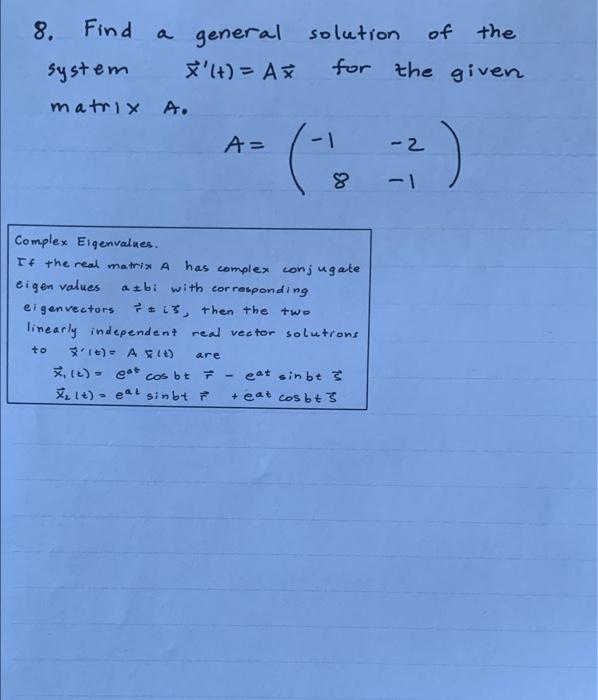 8. Find a general solution of the
system x⃗'(t) = Ax⃗ for the given
matrix A.
A = ( -1 -2
8 -1 )
Complex Eigenvalues.
If the real matrix A has complex conjugate
eigen values a±bi with corresponding
eigenvectors r⃗ ± is⃗, then the two
linearly independent real vector solutions
to x⃗'(t) = A x⃗(t) are
x⃗₁(t) = eᵃᵗ cos bt r⃗ - eᵃᵗ sinbt s⃗
x⃗₂(t) = eᵃᵗ sinbt r⃗ + eᵃᵗ cosbt s⃗